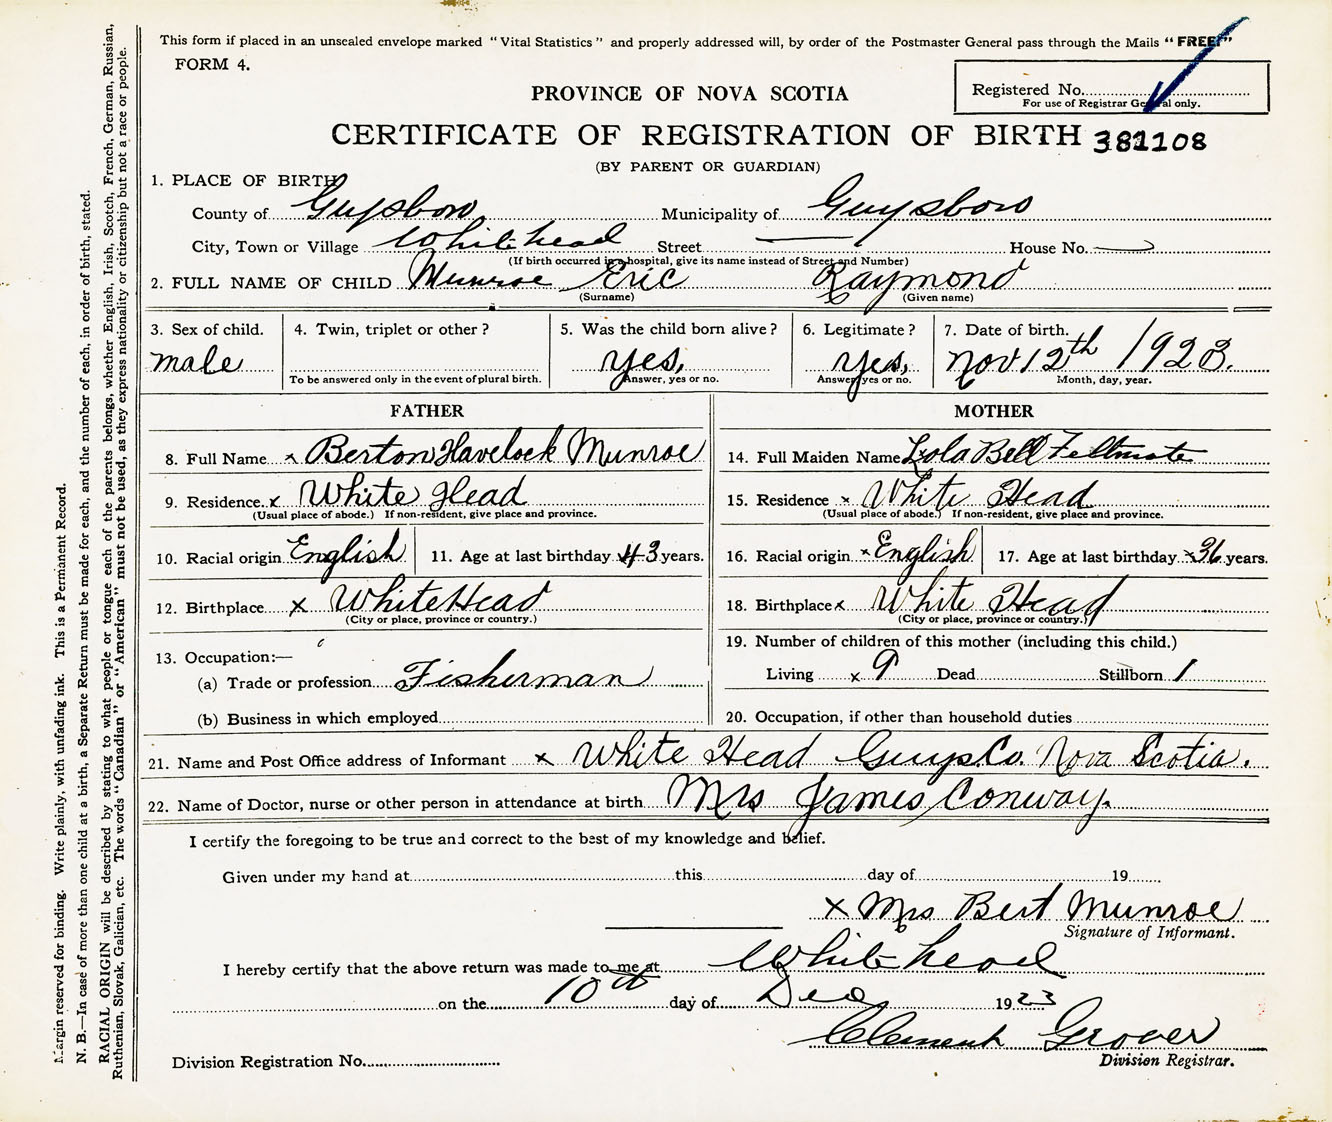 This form if placed in an unsealed envelope marked "Vital Statistics" and properly addressed will, by order of the Postmaster General pass through the Mails "FREE"
FORM 4.
Registered No.
For use of Registrar General only.
PROVINCE OF NOVA SCOTIA
CERTIFICATE OF REGISTRATION OF BIRTH 381108
(BY PARENT OR GUARDIAN)
1. PLACE OF BIRTH
County of Guysboro Municipality of Guysboro
City, Town or Village Whitehead Street — House No. —
(If birth occurred in a hospital, give its name instead of Street and Number)
2. FULL NAME OF CHILD Munroe Eric Raymond
(Surname) (Given name)
3. Sex of child. 4. Twin, triplet or other? 5. Was the child born alive? 6. Legitimate? 7. Date of birth.
male yes, yes, Nov 12th 1923.
To be answered only in the event of plural birth. Answer, yes or no. Answer, yes or no. Month, day, year.
FATHER MOTHER
8. Full Name x Berton Havelock Munroe 14. Full Maiden Name Lola Bell Feltmate
9. Residence x White Head 15. Residence x White Head
(Usual place of abode.) If non-resident, give place and province. (Usual place of abode.) If non-resident, give place and province.
10. Racial origin English 11. Age at last birthday 43 years. 16. Racial origin x English 17. Age at last birthday x 36 years.
12. Birthplace x White Head 18. Birthplace x White Head
(City or place, province or country.) (City or place, province or country.)
13. Occupation:— 19. Number of children of this mother (including this child.)
(a) Trade or profession Fisherman Living x 9 Dead Stillborn 1
(b) Business in which employed 20. Occupation, if other than household duties
21. Name and Post Office address of Informant x White Head Guys. Co. Nova Scotia.
22. Name of Doctor, nurse or other person in attendance at birth Mrs James Conway.
I certify the foregoing to be true and correct to the best of my knowledge and belief.
Given under my hand at this day of 19
x Mrs Bert Munroe
Signature of Informant.
I hereby certify that the above return was made to me at Whitehead
on the 10th day of Dec 1923
Clement Grover
Division Registration No. Division Registrar.
Margin reserved for binding. Write plainly, with unfading ink. This is a Permanent Record.
N. B.—In case of more than one child at a birth, a Separate Return must be made for each, and the number of each, in order of birth, stated.
RACIAL ORIGIN will be described by stating to what people or tongue each of the parents belongs, whether English, Irish, Scotch, French, German, Russian,
Ruthenian, Slovak, Galician, etc. The words "Canadian" or "American" must not be used, as they express nationality or citizenship but not a race or people.